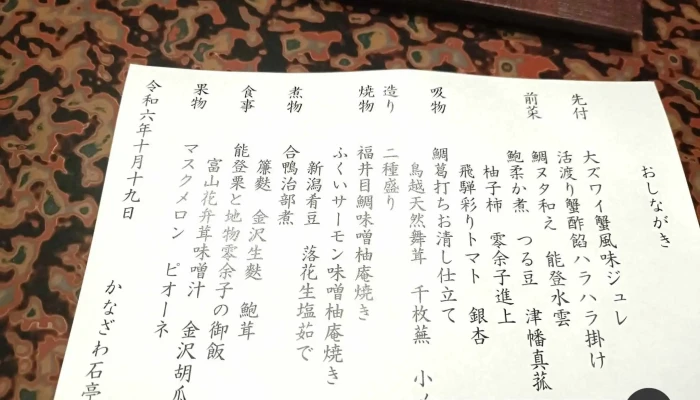 おしながき
先付
大ズワイ蟹風味ジュレ
活渡り蟹酢餡ハラハラ掛け
前菜
鯛ヌタ和え 能登水雲
鮑柔か煮 つる豆 津幡真菰
柚子柿 零余子進上
飛騨彩りトマト 銀杏
吸物
鯛葛打ちお清し仕立て
鳥越天然舞茸 千枚蕪
造り
二種盛り
焼物
福井目鯛味噌柚庵焼き
ふくいサーモン味噌柚庵焼き
新潟肴豆 落花生塩茹で
煮物
合鴨治部煮
簾麩 金沢生麩 鮑茸
食事
能登栗と地物零余子の御飯
富山花弁茸味噌汁 金沢胡瓜
果物
マスクメロン ピオーネ
令和六年十月十九日
かなざわ石亭